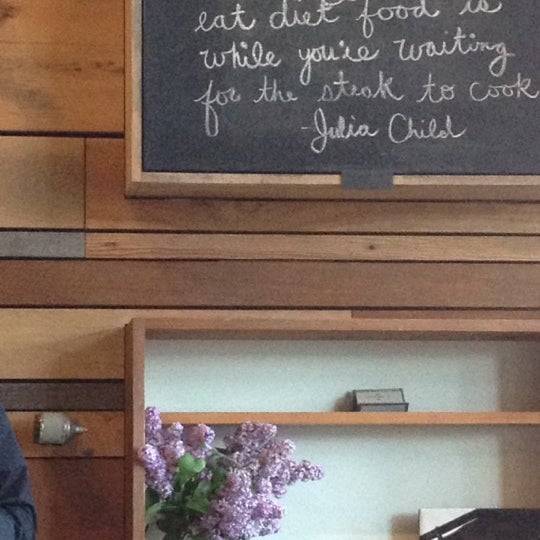 eat diet food is
while you're waiting
for the steak to cook
-Julia Child